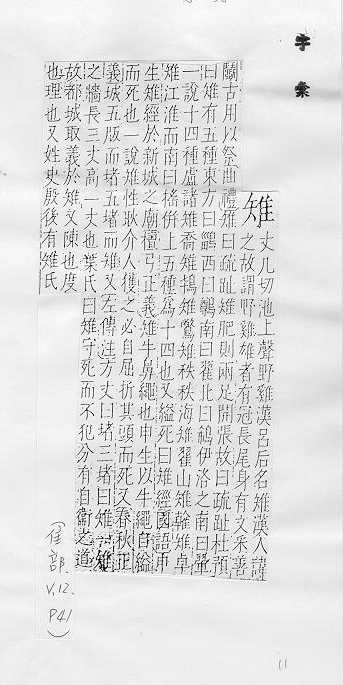 字彙
雉
丈几切池上聲野雞漢呂后名雉漢人諱
之故謂野雞雄者有冠長尾身有文采善
鬭古用以祭曲禮雉曰疏趾雉肥則兩足開張故曰疏趾杜預
曰雉有五種東方曰鶅西曰鷷南曰翟北曰鵗伊洛之南曰翬
一說十四種盧諸雉喬雉鳪雉鷩雉秩秩海雉翟山雉雗雉卓
雉江淮而南曰搖併上五種爲十四也又縊死曰雉經國語申
生雉經於新城之廟檀弓正義雉牛鼻繩也申生以牛繩自縊
而死也一說雉性耿介人獲之必自屈折其頭而死又春秋正
義城五版而堵五堵而雉又左傳注方丈曰堵三堵曰雉一雉
之牆長三丈高一丈也葉氏曰雉守死而不犯分有自衞之道
故都城取義於雉文陳也度
也理也又姓史殷後有雉氏
(隹部.
V.12.
P41)
11